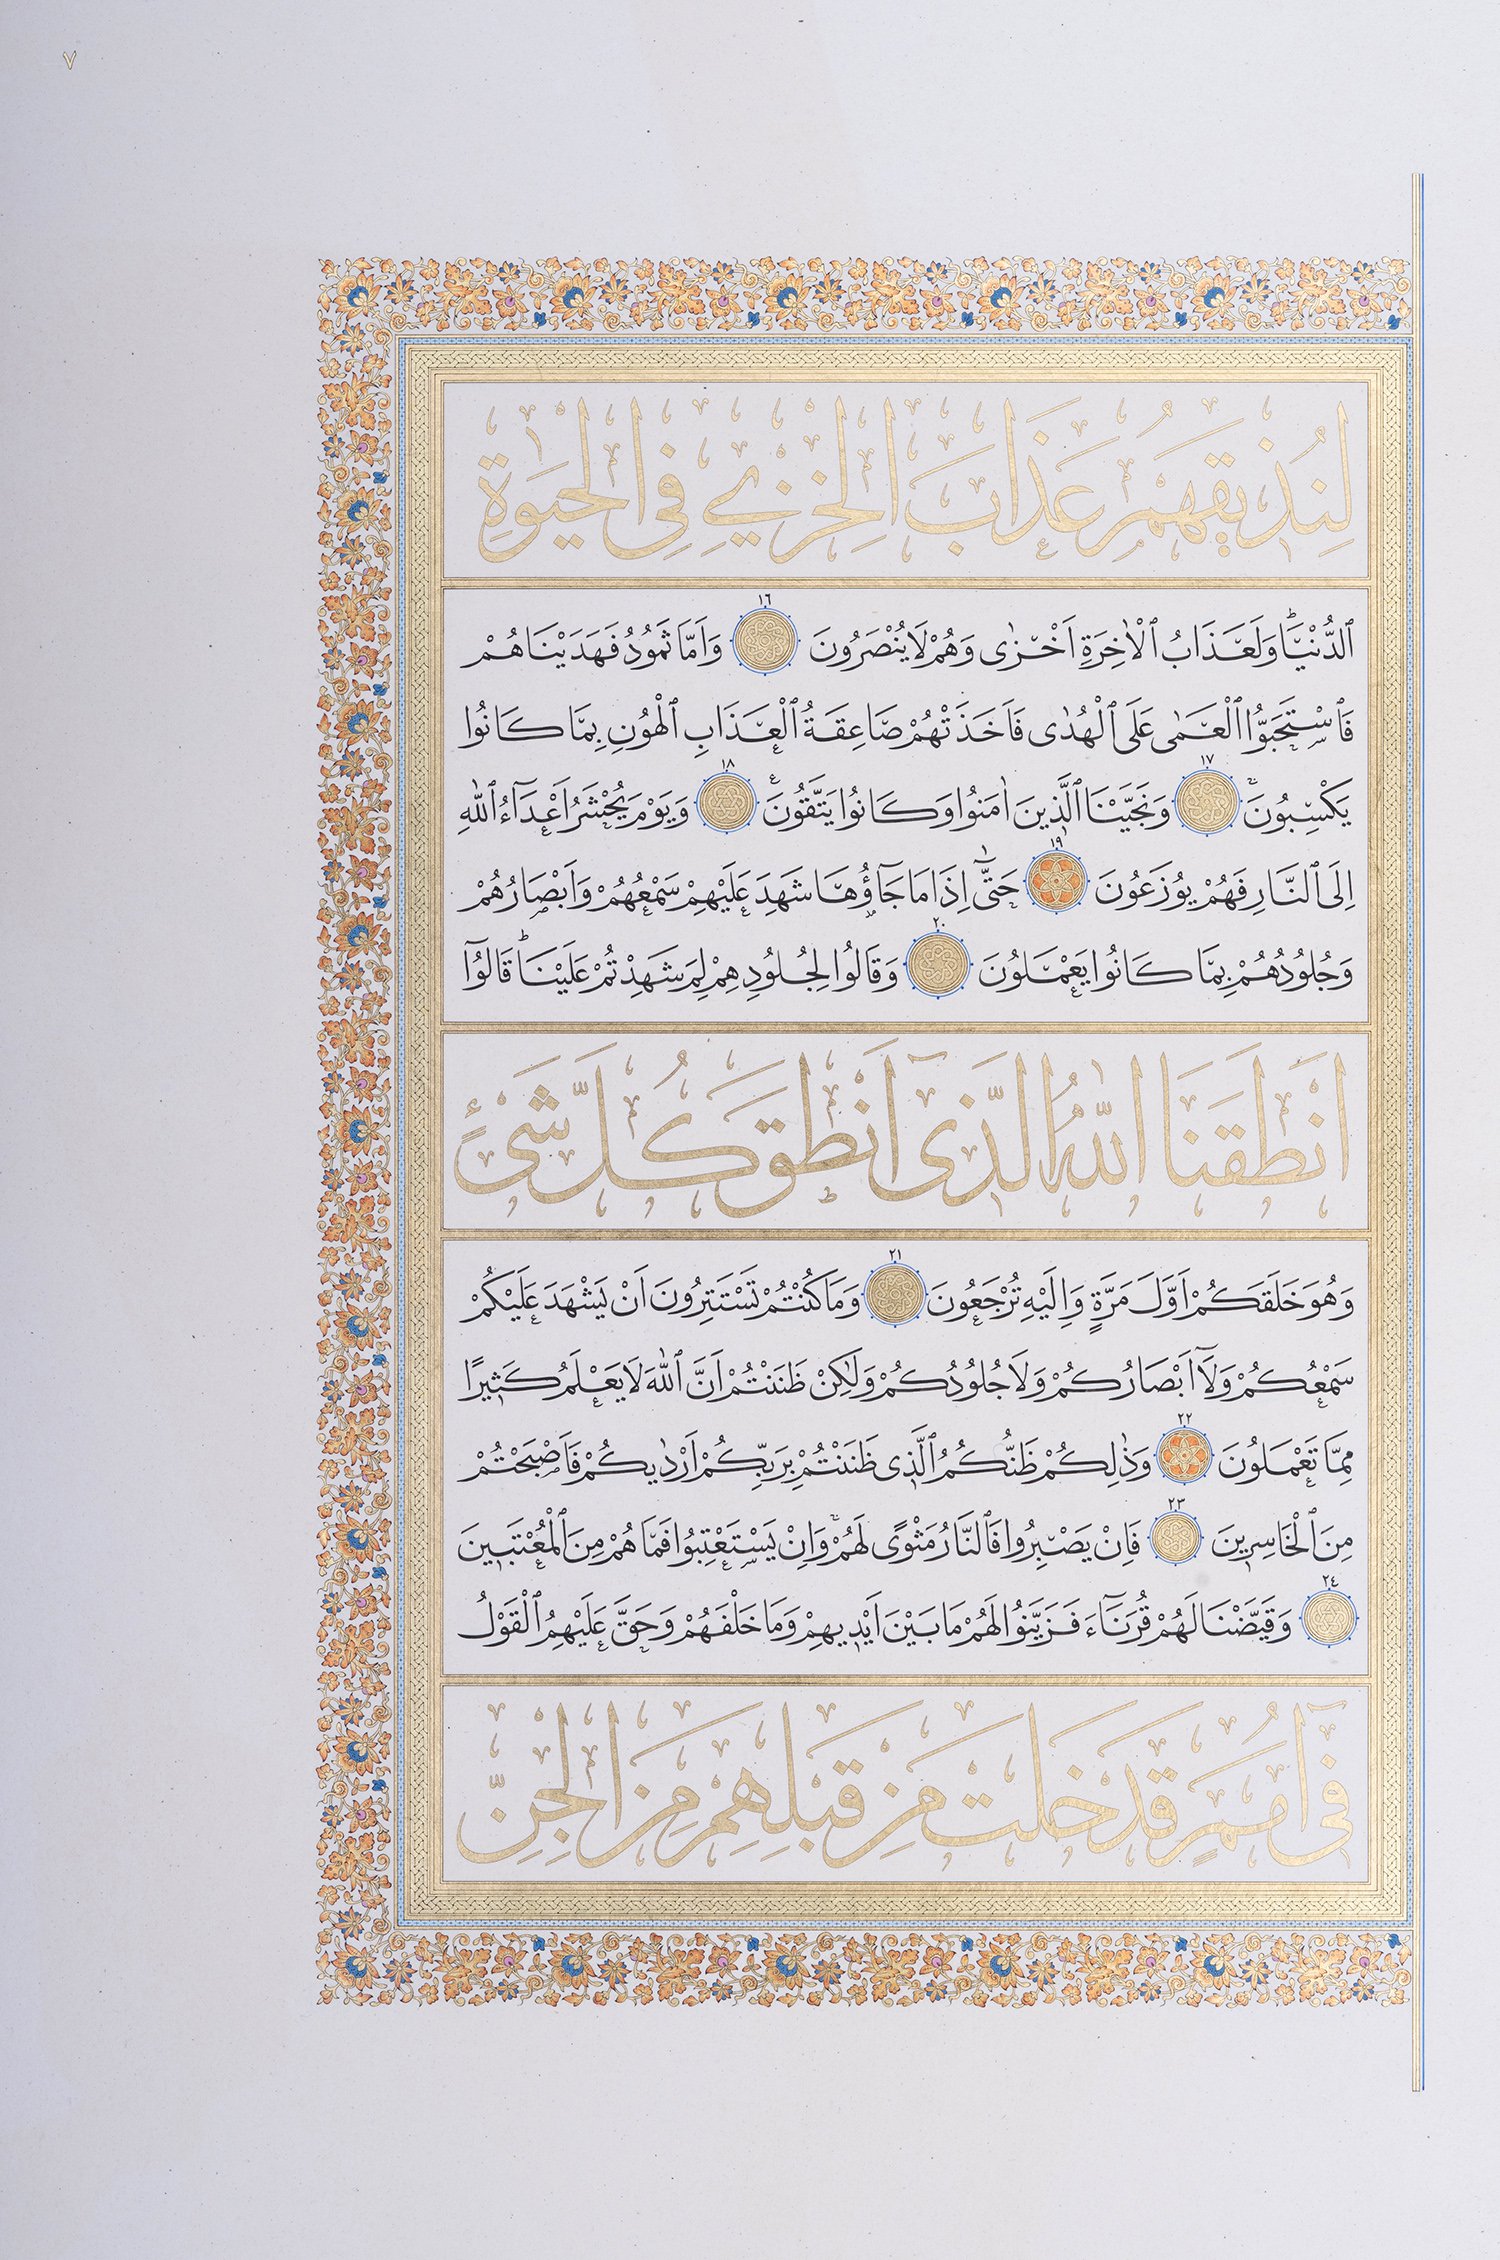 ٧
لِنُذ۪يقَهُمْ عَذَابَ الْخِزْيِ فِي الْحَيٰوةِ
ٱلدُّنْيَاۜ وَلَعَذَابُ ٱلْاٰخِرَةِ اَخْزٰى وَهُمْ لَا يُنْصَرُونَ ١٦ وَاَمَّا ثَمُودُ فَهَدَيْنَاهُمْ
فَٱسْتَحَبُّوا ٱلْعَمٰى عَلَى ٱلْهُدٰى فَاَخَذَتْهُمْ صَاعِقَةُ ٱلْعَذَابِ ٱلْهُونِ بِمَا كَانُوا
يَكْسِبُونَۚ ١٧ وَنَجَّيْنَا ٱلَّذ۪ينَ اٰمَنُوا وَكَانُوا يَتَّقُونَ۟ ١٨ وَيَوْمَ يُحْشَرُ اَعْدَٓاءُ ٱللّٰهِ
اِلَى ٱلنَّارِ فَهُمْ يُوزَعُونَ ١٩ حَتّٰٓى اِذَا مَا جَٓاؤُ۫هَا شَهِدَ عَلَيْهِمْ سَمْعُهُمْ وَاَبْصَارُهُمْ
وَجُلُودُهُمْ بِمَا كَانُوا يَعْمَلُونَ ٢٠ وَقَالُوا لِجُلُودِهِمْ لِمَ شَهِدْتُمْ عَلَيْنَاۜ قَالُٓوا
اَنْطَقَنَا اللّٰهُ الَّذ۪ٓي اَنْطَقَ كُلَّ شَيْءٍ
وَهُوَ خَلَقَكُمْ اَوَّلَ مَرَّةٍ وَاِلَيْهِ تُرْجَعُونَ ٢١ وَمَا كُنْتُمْ تَسْتَتِرُونَ اَنْ يَشْهَدَ عَلَيْكُمْ
سَمْعُكُمْ وَلَٓا اَبْصَارُكُمْ وَلَا جُلُودُكُمْ وَلٰكِنْ ظَنَنْتُمْ اَنَّ ٱللّٰهَ لَا يَعْلَمُ كَث۪يرًا
مِمَّا تَعْمَلُونَ ٢٢ وَذٰلِكُمْ ظَنُّكُمُ ٱلَّذ۪ى ظَنَنْتُمْ بِرَبِّكُمْ اَرْدٰيكُمْ فَاَصْبَحْتُمْ
مِنَ ٱلْخَاسِر۪ينَ ٢٣ فَاِنْ يَصْبِرُوا فَٱلنَّارُ مَثْوًى لَهُمْۚ وَاِنْ يَسْتَعْتِبُوا فَمَا هُمْ مِنَ ٱلْمُعْتَب۪ينَ
٢٤ وَقَيَّضْنَا لَهُمْ قُرَنَٓاءَ فَزَيَّنُوا لَهُمْ مَا بَيْنَ اَيْد۪يهِمْ وَمَا خَلْفَهُمْ وَحَقَّ عَلَيْهِمُ ٱلْقَوْلُ
ف۪ٓي اُمَمٍ قَدْ خَلَتْ مِنْ قَبْلِهِمْ مِنَ الْجِنِّ